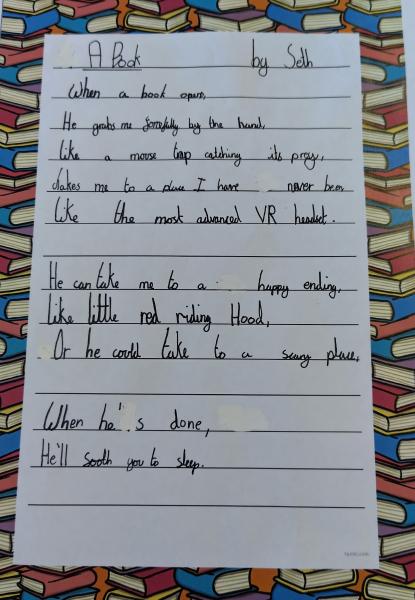 A Book by Seth
When a book opens,
He grabs me forcefully by the hand,
like a mouse trap catching its pray,
takes me to a place I have never been
like the most advanced VR headset.
He can take me to a happy ending,
like little red riding Hood,
Or he could take to a scary place,
When he's done,
He'll sooth you to sleep.